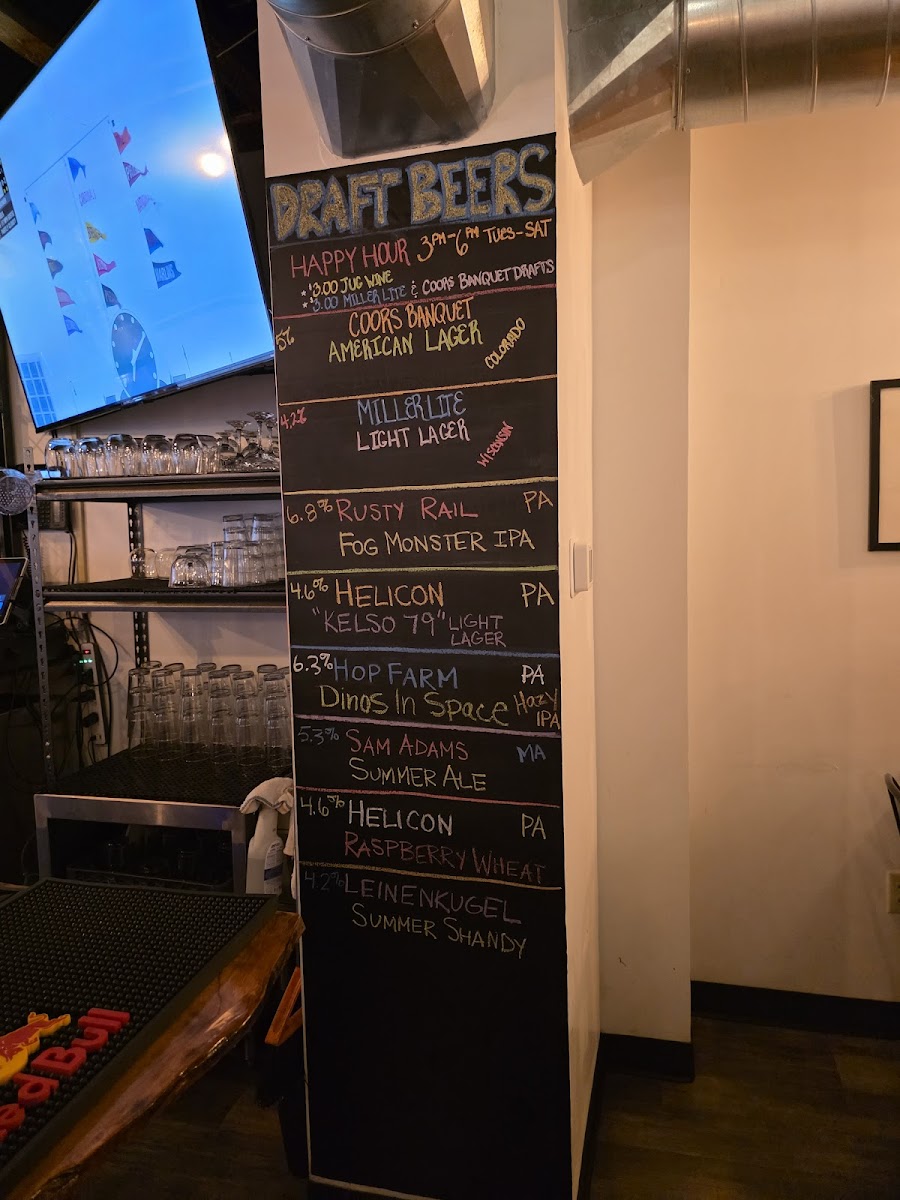 DRAFT BEERS
HAPPY HOUR 3PM-6PM TUES-SAT
*$3.00 JUG WINE
*$3.00 MILLER LITE & COORS BANQUET DRAFTS
5% COORS BANQUET
AMERICAN LAGER COLORADO
4.2% MILLER LITE
LIGHT LAGER WISCONSIN
6.8% RUSTY RAIL PA
FOG MONSTER IPA
4.6% HELICON PA
"KELSO 79" LIGHT
LAGER
6.3% HOP FARM PA
Dinos In Space Hazy
IPA
5.3% SAM ADAMS MA
SUMMER ALE
4.6% HELICON PA
RASPBERRY WHEAT
4.2% LEINENKUGEL
SUMMER SHANDY
RedBull